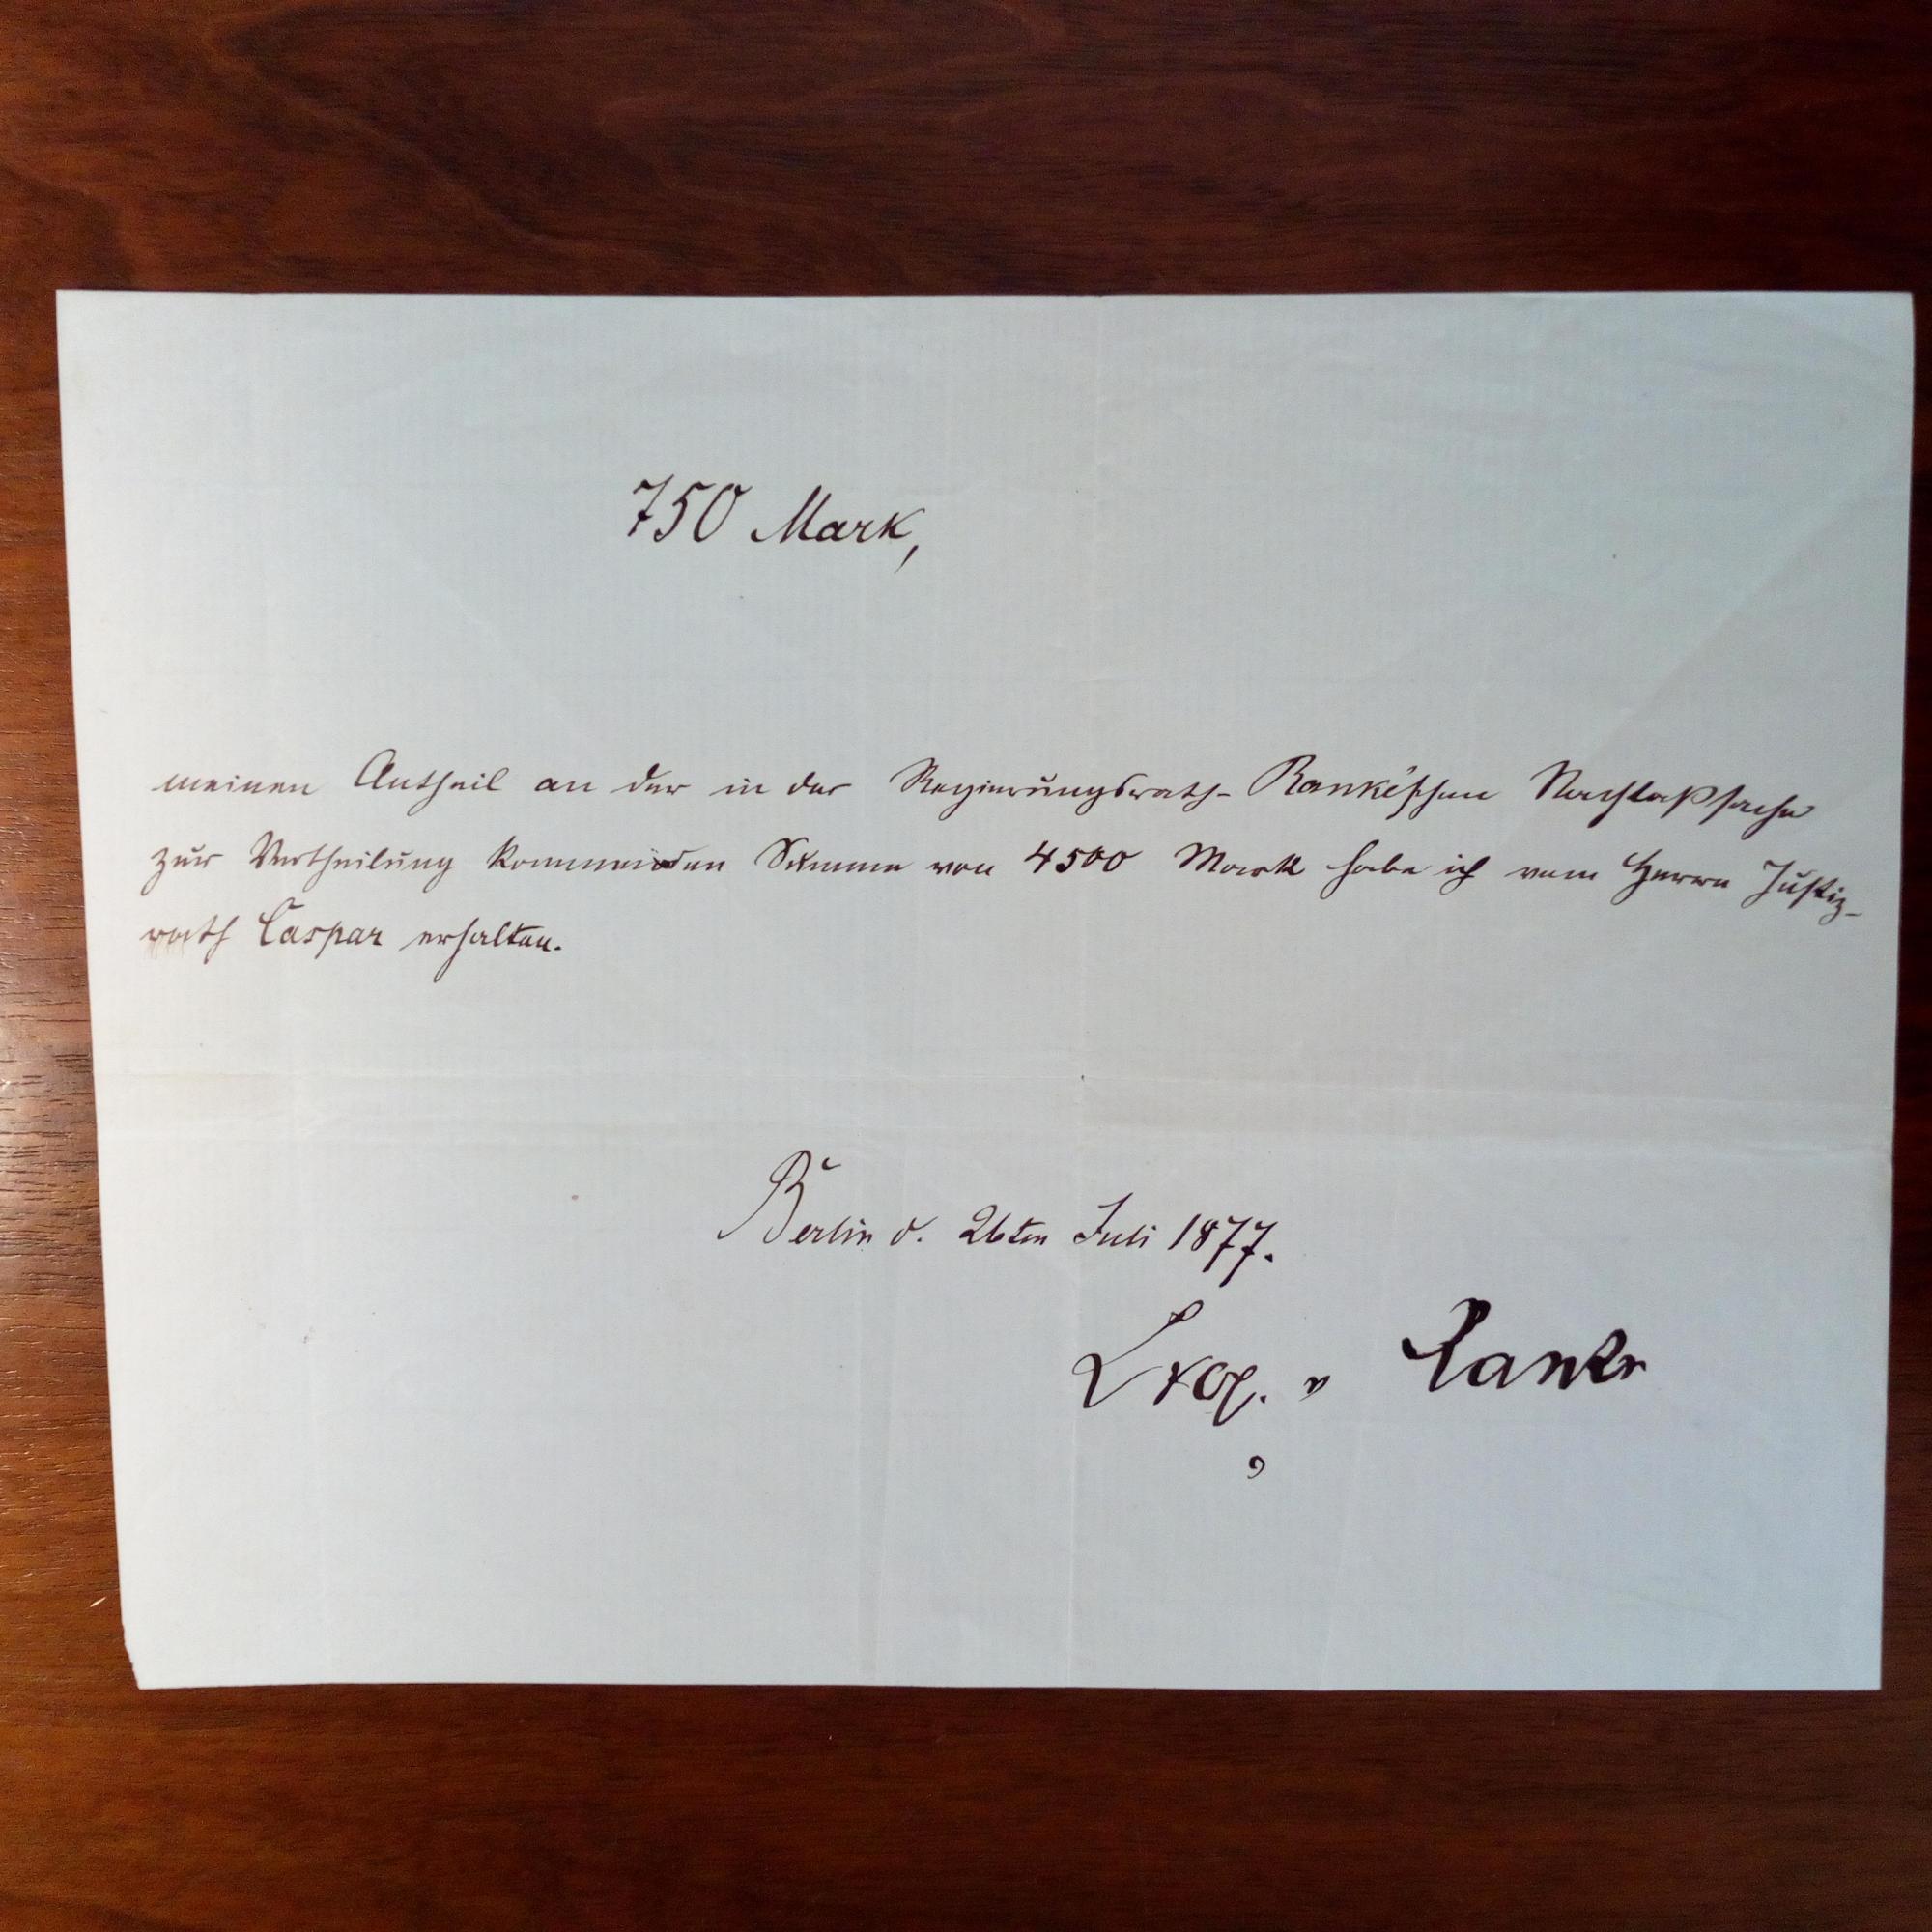 750 Mark,
meinen Antheil an der in der Regierungsrath- Ranke'schen Nachlaßsache
zur Vertheilung kommenden Summe von 4500 Mark habe ich vom Herrn Justiz-
rath Caspar erhalten.
Berlin d. 26ten Juli 1877.
Leop. v Ranke